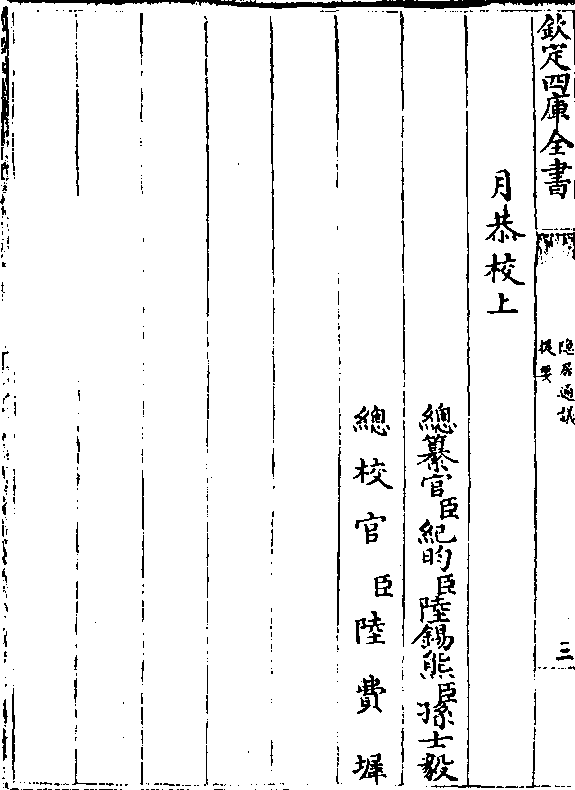 欽定四庫全書
隱居通議
提要
三
月恭校上
總纂官臣紀昀臣陸錫熊臣孫士毅
總校官臣陸費墀